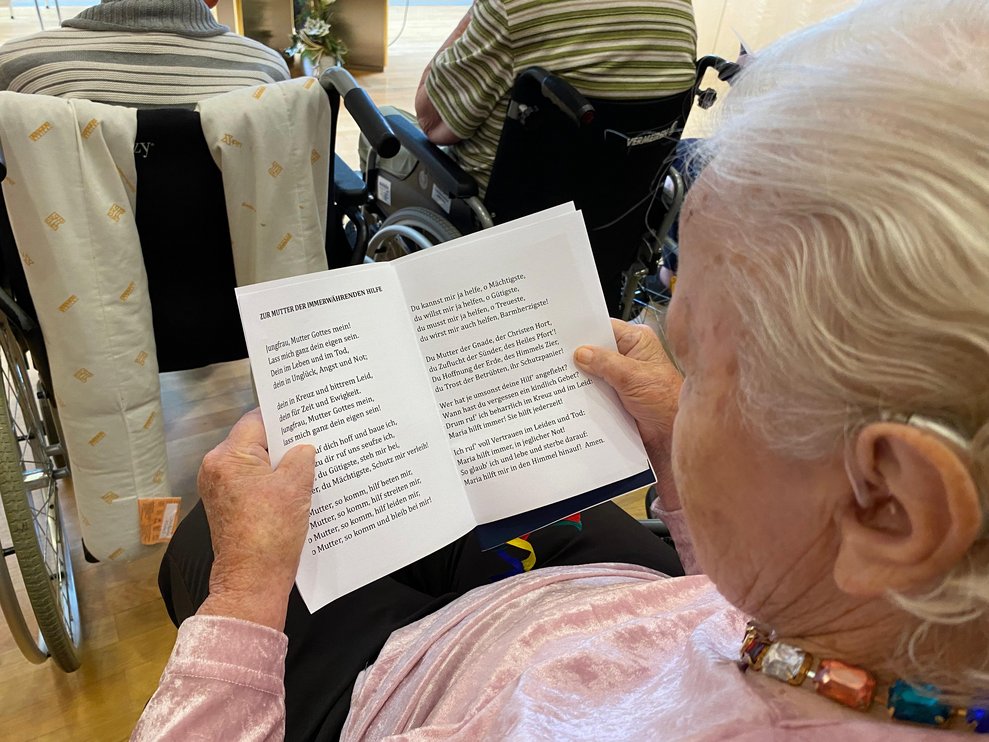 VERMEIREN
ZUR MUTTER DER IMMERWÄHRENDEN HILFE
Jungfrau, Mutter Gottes mein!
Lass mich ganz dein eigen sein.
Dein im Leben und im Tod,
dein in Unglück, Angst und Not;
dein in Kreuz und bittrem Leid,
dein für Zeit und Ewigkeit.
Jungfrau, Mutter Gottes mein,
lass mich ganz dein eigen sein!
auf dich hoff und baue ich,
zu dir ruf uns seufze ich,
du Gütigste, steh mir bei,
du Mächtigste, Schutz mir verleih!
Mutter, so komm, hilf beten mir,
Mutter, so komm, hilf streiten mir,
o Mutter, so komm, hilf leiden mir,
o Mutter, so komm und bleib bei mir!
Du kannst mir ja helfe, o Mächtigste,
du willst mir ja helfen, o Gütigste,
du musst mir ja helfen, o Treueste,
du wirst mir auch helfen, Barmherzigste!
Du Mutter der Gnade, der Christen Hort,
du Zuflucht der Sünder, des Heiles Pfort'!
Du Hoffnung der Erde, des Himmels Zier,
du Trost der Betrübten, ihr Schutzpanier!
Wer hat je umsonst deine Hilf' angefleht?
Wann hast du vergessen ein kindlich Gebet?
Drum ruf' ich beharrlich im Kreuz und im Leid:
Maria hilft immer! Sie hilft jederzeit!
Ich ruf' voll Vertrauen im Leiden und Tod:
Maria hilft immer, in jeglicher Not!
So glaub' ich und lebe und sterbe darauf:
Maria hilft mir in den Himmel hinauf! Amen.